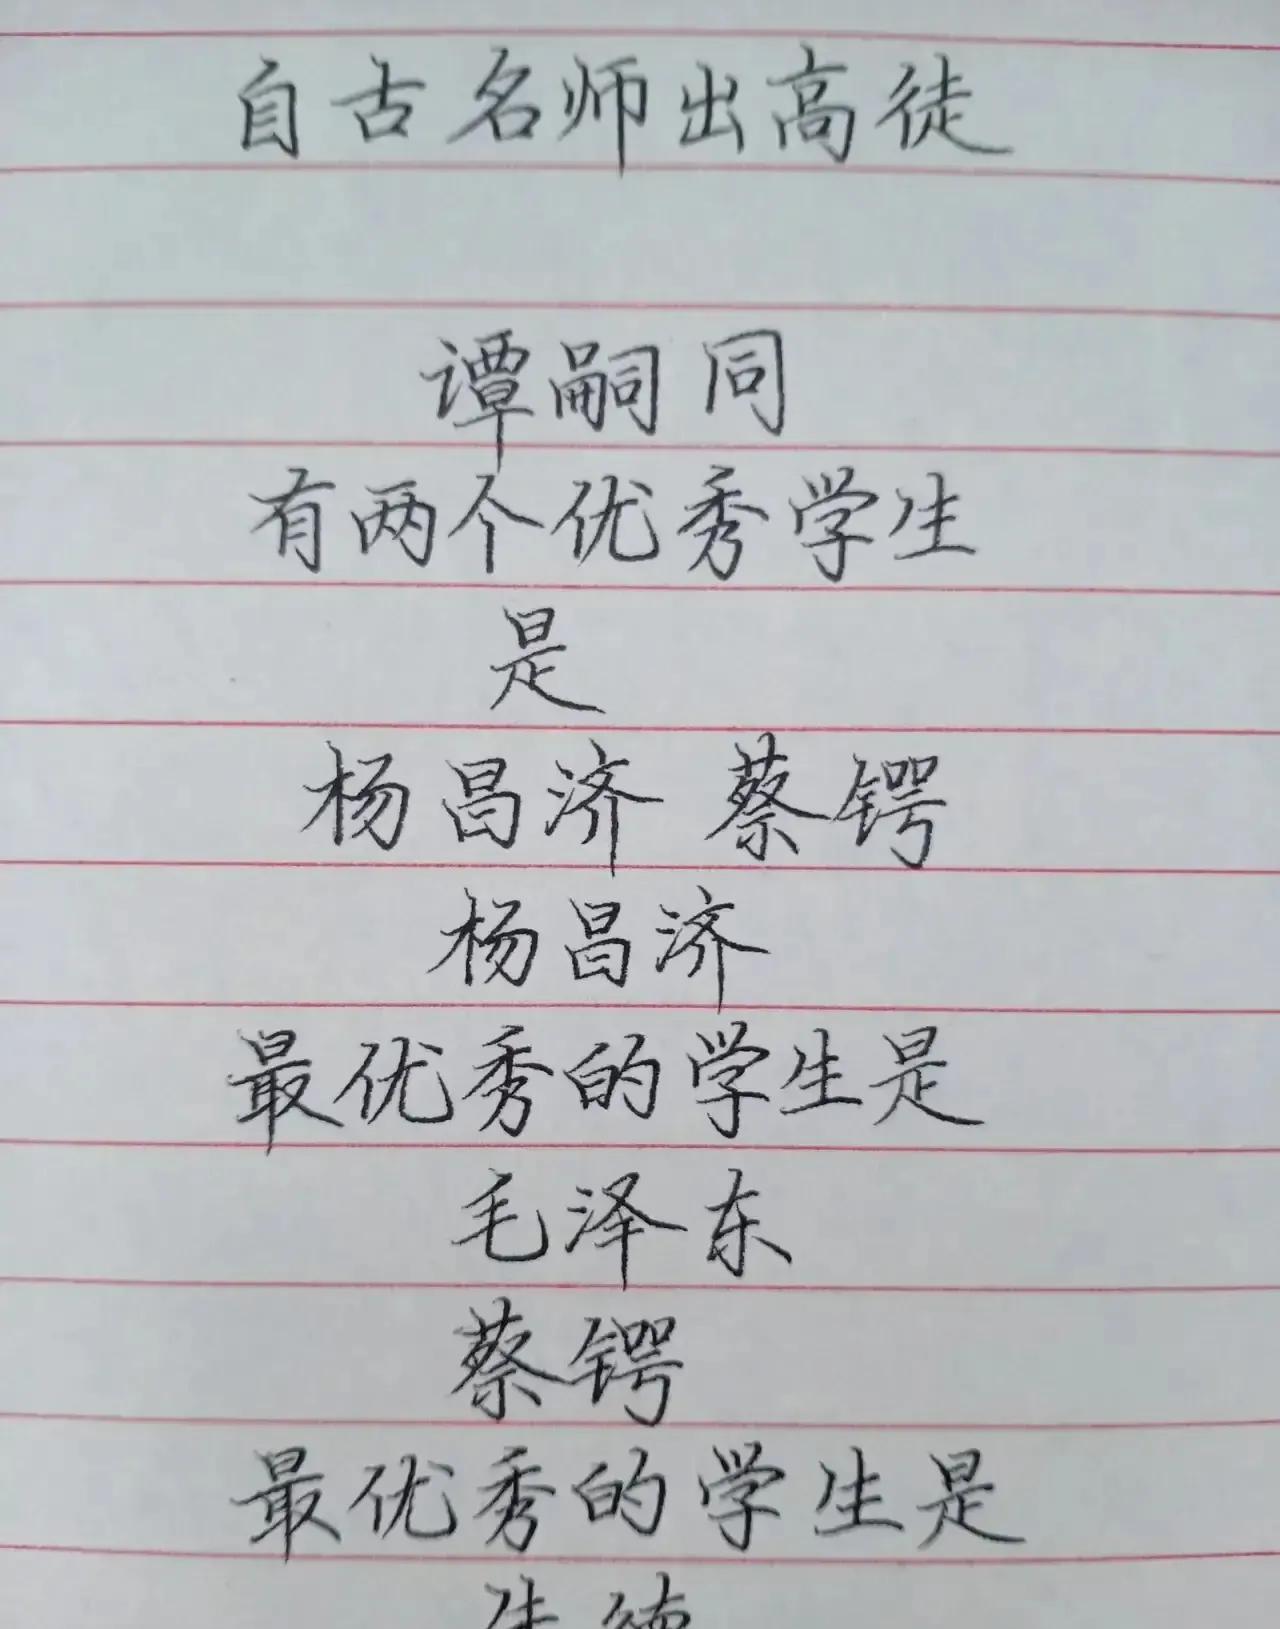 自古名师出高徒
谭嗣同
有两个优秀学生
是
杨昌济 蔡锷
杨昌济
最优秀的学生是
毛泽东
蔡锷
最优秀的学生是
朱德